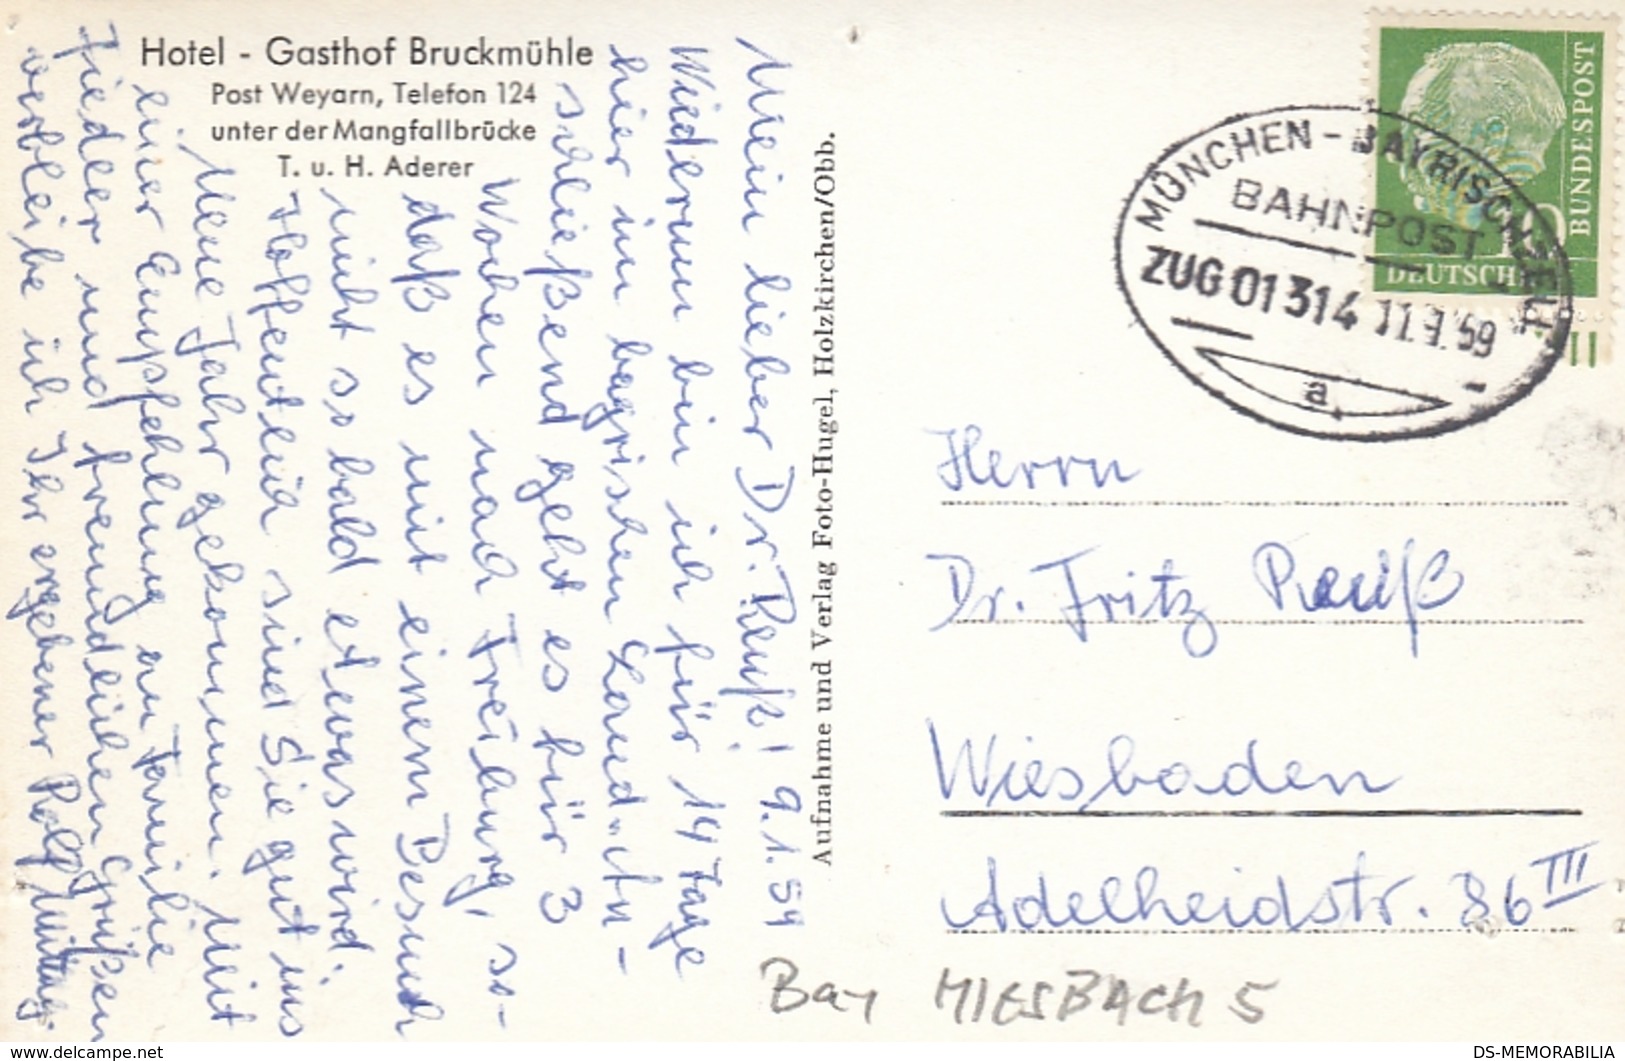 Hotel - Gasthof Bruckmühle
Post Weyarn, Telefon 124
unter der Mangfallbrücke
T. u. H. Aderer
Mein lieber Dr. Reuß! 9.1.59
Wiederum bin ich für 14 Tage
hier im bayrischen Land. An-
schließend geht es für 3
Wochen nach Freiburg, so-
daß es mit einem Besuch
nicht so bald etwas wird.
Hoffentlich sind Sie gut ins
Neue Jahr gekommen. Mit
einer Empfehlung an Familie
Fiedler und freundlichen Grüßen
verbleibe ich Ihr ergebener Rolf
Aufnahme und Verlag Foto-Hugel, Holzkirchen/Obb.
BUNDESPOST
DEUTSCHE
MÜNCHEN - BAYRISCHZELL
BAHNPOST
ZUG 01314 11.1.59
a
Herrn
Dr. Fritz Reuß
Wiesbaden
Adelheidstr. 86 III
Bay MIESBACH 5
delcampe.net
DS-MEMORABILIA